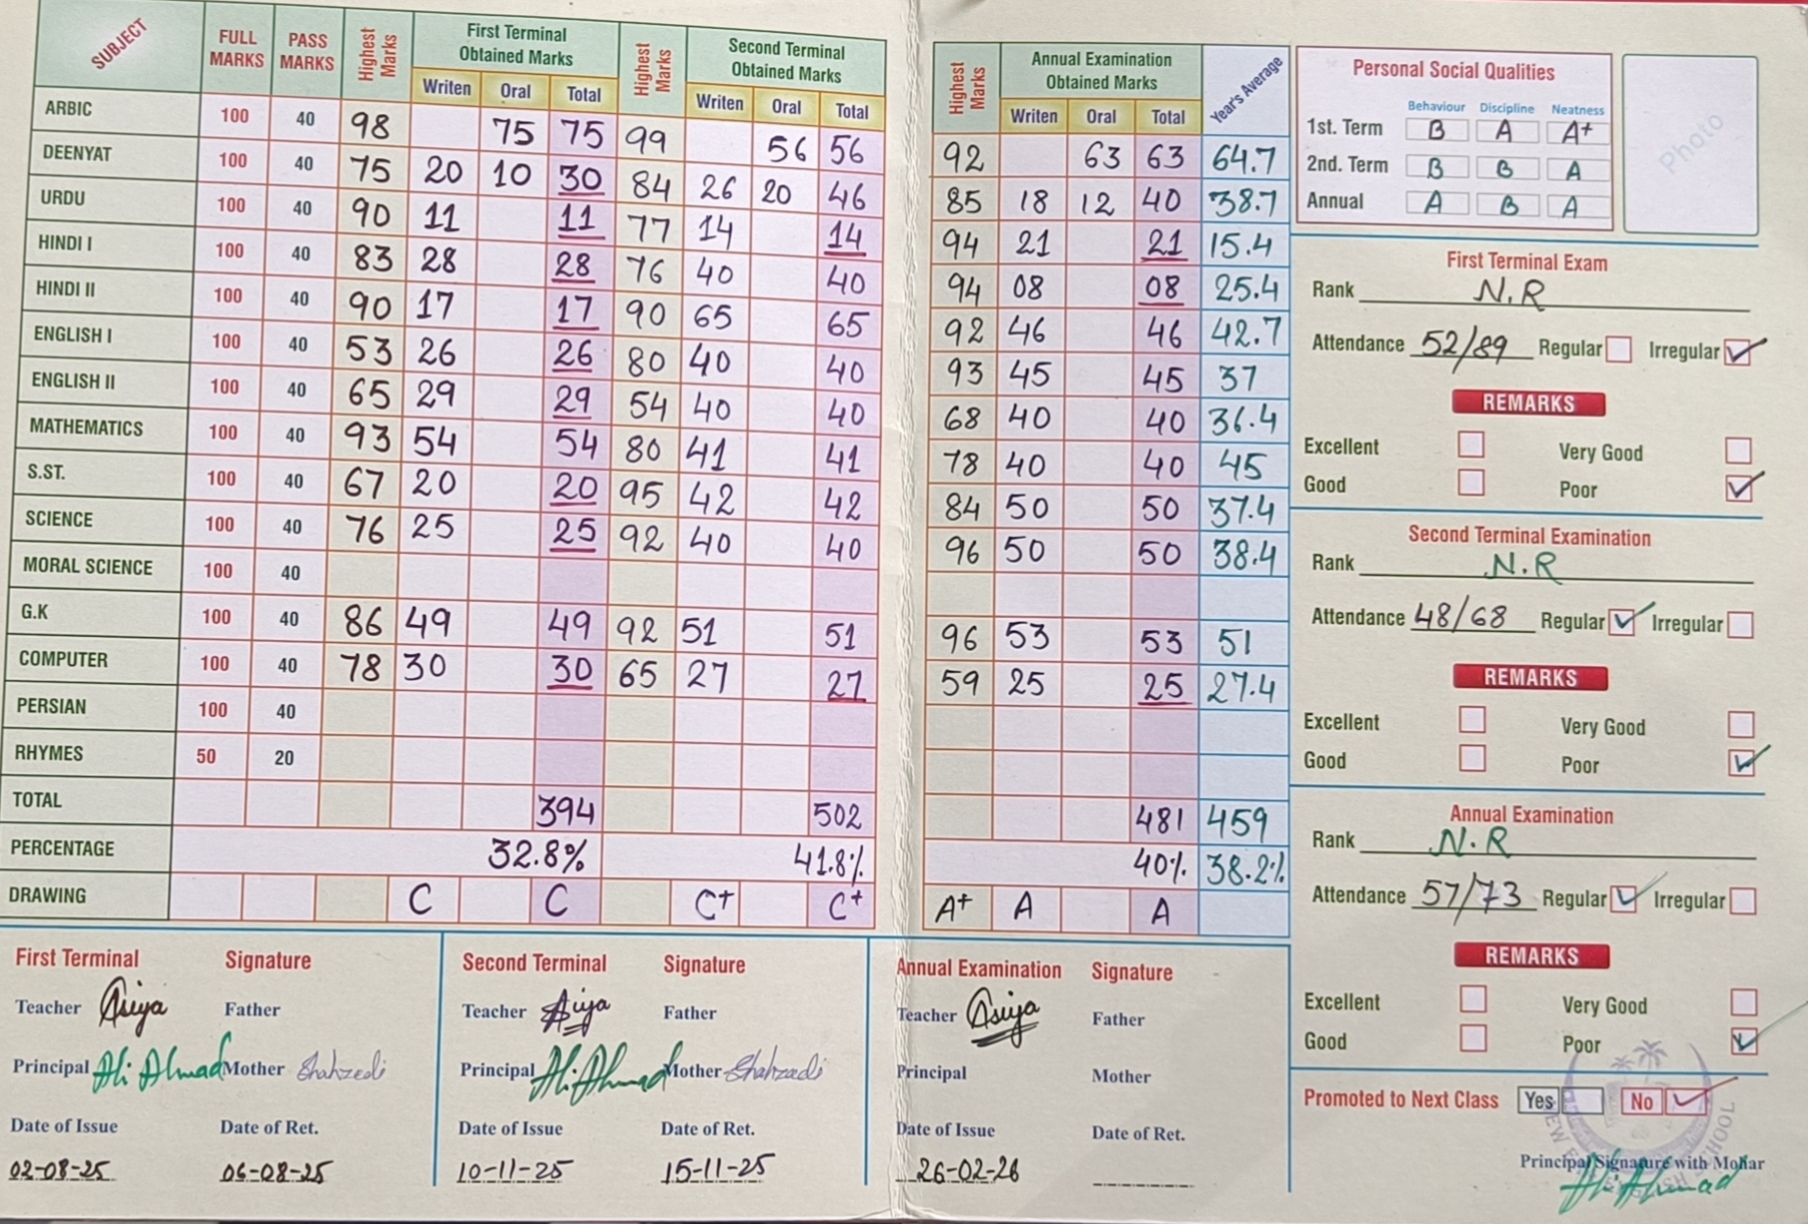 SUBJECT FULL MARKS PASS MARKS Highest Marks First Terminal Obtained Marks Highest Marks Second Terminal Obtained Marks Highest Marks Annual Examination Obtained Marks Year's Average
Writen Oral Total Writen Oral Total Writen Oral Total
ARBIC 100 40 98 75 75 99 56 56 92 63 63 64.7
DEENYAT 100 40 75 20 10 30 84 26 20 46 85 18 12 40 38.7
URDU 100 40 90 11 11 77 14 14 94 21 21 15.4
HINDI I 100 40 83 28 28 76 40 40 94 08 08 25.4
HINDI II 100 40 90 17 17 90 65 65 92 46 46 42.7
ENGLISH I 100 40 53 26 26 80 40 40 93 45 45 37
ENGLISH II 100 40 65 29 29 54 40 40 68 40 40 36.4
MATHEMATICS 100 40 93 54 54 80 41 41 78 40 40 45
S.ST. 100 40 67 20 20 95 42 42 84 50 50 37.4
SCIENCE 100 40 76 25 25 92 40 40 96 50 50 38.4
MORAL SCIENCE 100 40
G.K 100 40 86 49 49 92 51 51 96 53 53 51
COMPUTER 100 40 78 30 30 65 27 27 59 25 25 27.4
PERSIAN 100 40
RHYMES 50 20
TOTAL 394 502 481 459
PERCENTAGE 32.8% 41.8% 40% 38.2%
DRAWING C C C+ C+ A+ A A
Personal Social Qualities
Behaviour Discipline Neatness
1st. Term B A A+
2nd. Term B B A
Annual A B A
Photo
First Terminal Exam
Rank N.R
Attendance 52/89 Regular Irregular
REMARKS
Excellent Very Good
Good Poor
Second Terminal Examination
Rank N.R
Attendance 48/68 Regular Irregular
REMARKS
Excellent Very Good
Good Poor
Annual Examination
Rank N.R
Attendance 57/73 Regular Irregular
REMARKS
Excellent Very Good
Good Poor
Promoted to Next Class Yes No
Principal Signature with Mohar
Ali Ahmad
First Terminal Signature
Teacher Asiya Father
Principal Ali Ahmad Mother Shahzedi
Date of Issue Date of Ret.
02-08-25 06-08-25
Second Terminal Signature
Teacher Asiya Father
Principal Ali Ahmad Mother Shahzadi
Date of Issue Date of Ret.
10-11-25 15-11-25
Annual Examination Signature
Teacher Asiya Father
Principal Mother
Date of Issue Date of Ret.
26-02-26